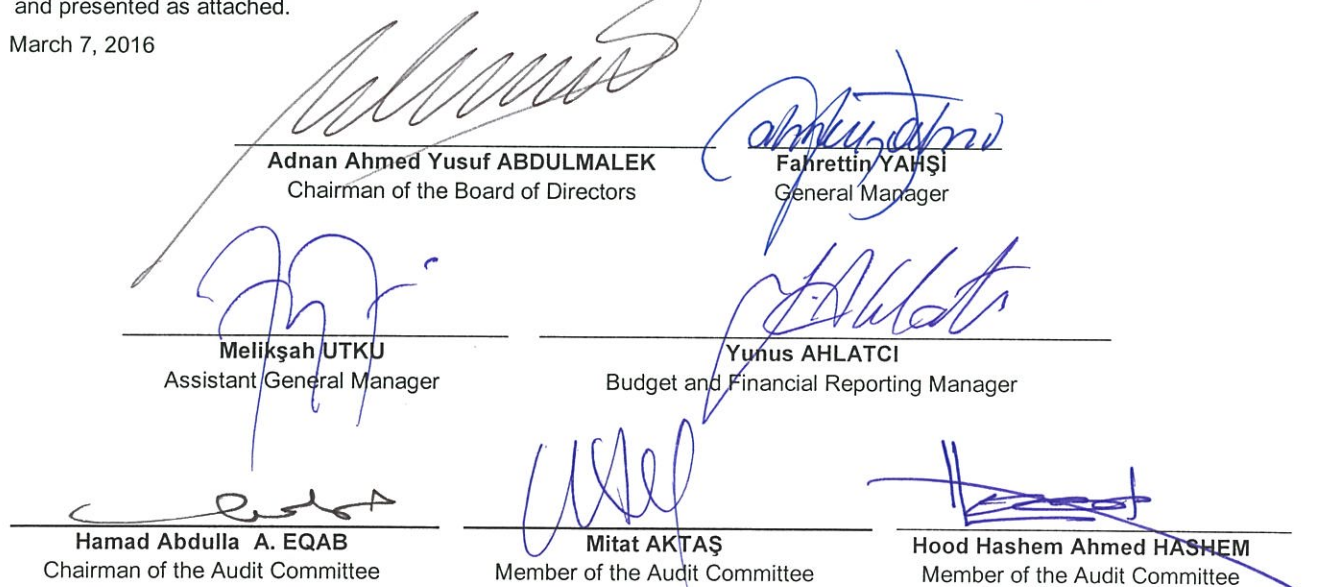 and presented as attached.
March 7, 2016
Adnan Ahmed Yusuf ABDULMALEK
Chairman of the Board of Directors
Fahrettin YAHŞİ
General Manager
Melikşah UTKU
Assistant General Manager
Yunus AHLATCI
Budget and Financial Reporting Manager
Hamad Abdulla A. EQAB
Chairman of the Audit Committee
Mitat AKTAŞ
Member of the Audit Committee
Hood Hashem Ahmed HASHEM
Member of the Audit Committee